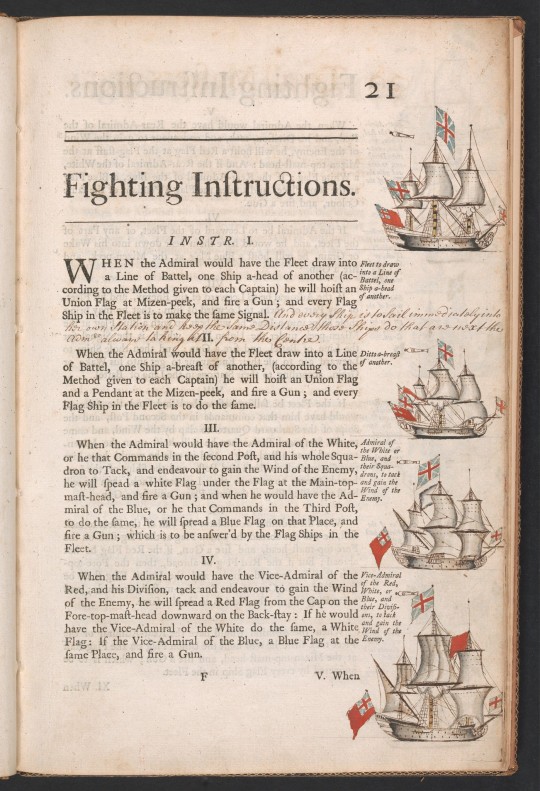 21
Fighting Inſtructions.
INSTR. I.
WHEN the Admiral would have the Fleet draw into
a Line of Battel, one Ship a-head of another (ac-
cording to the Method given to each Captain) he will hoiſt an
Union Flag at Mizen-peek, and fire a Gun; and every Flag
Ship in the Fleet is to make the same Signal. And every Ship is to sail immediately into
her own Station and keep the same Distance those Ships do that are next the
Admˡ always taking it from the Centre.
Fleet to draw
into a Line of
Battel, one
Ship a-head
of another.
II.
When the Admiral would have the Fleet draw into a Line
of Battel, one Ship a-breaſt of another, (according to the
Method given to each Captain) he will hoiſt an Union Flag
and a Pendant at the Mizen-peek, and fire a Gun; and every
Flag Ship in the Fleet is to do the ſame.
Ditto a-breaſt
of another.
III.
When the Admiral would have the Admiral of the White,
or he that Commands in the ſecond Poſt, and his whole Squa-
dron to Tack, and endeavour to gain the Wind of the Enemy,
he will ſpead a white Flag under the Flag at the Main-top-
maſt-head, and fire a Gun; and when he would have the Ad-
miral of the Blue, or he that Commands in the Third Poſt,
to do the ſame, he will ſpread a Blue Flag on that Place, and
fire a Gun; which is to be anſwer'd by the Flag Ships in the
Fleet.
Admiral of
the White or
Blue, and
their Squa-
drons, to tack
and gain the
Wind of the
Enemy.
IV.
When the Admiral would have the Vice-Admiral of the
Red, and his Diviſion, tack and endeavour to gain the Wind
of the Enemy, he will ſpread a Red Flag from the Cap on the
Fore-top-maſt-head downward on the Back-ſtay: If he would
have the Vice-Admiral of the White do the ſame, a White
Flag; If the Vice-Admiral of the Blue, a Blue Flag at the
ſame Place, and fire a Gun.
Vice-Admiral
of the Red,
White, or
Blue, and
their Diviſi-
ons, to tack
and gain the
Wind of the
Enemy.
F
V. When